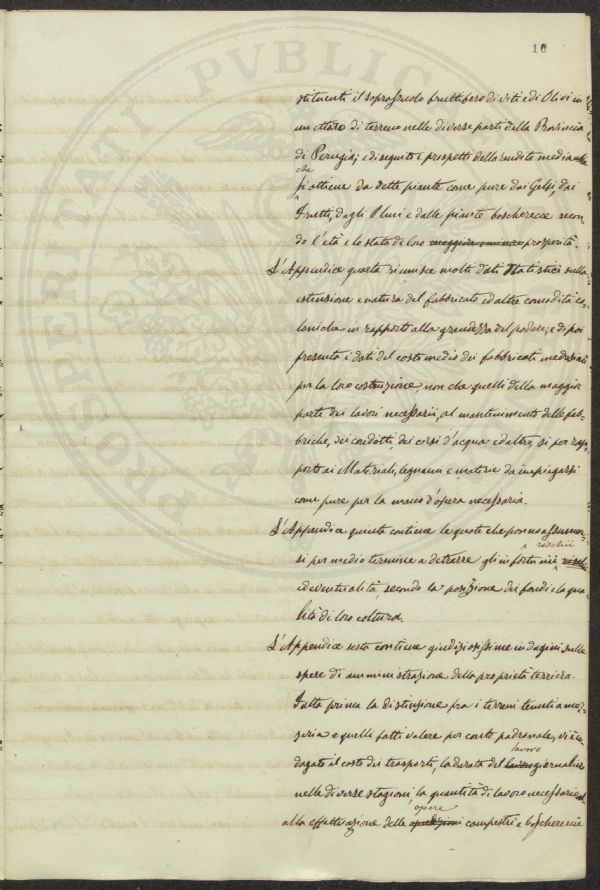 10
PVBLICAE
PROSPERITATI
stituenti il soprassuolo fruttifero di viti e di Olivi in
un ettaro di terreno nelle diverse parti della Provincia
di Perugia; e di seguito i prospetti della rendita media
che
si ottiene da dette piante come pure dai Gelsi, dai
Frutti, dagli Olmi e dalle piante boscherecce secon-
do l'età e lo stato de loro maggiore o minore prosperità.
L'Appendice quarta riunisce molti dati Statistici sulla
estensione e natura del fabbricato ed altre comodità co-
loniche in rapporto alla grandezza del podere; e di poi
presenta i dati del costo medio dei fabbricati medesimi
per la loro costruzione, non che quelli della maggior
parte dei lavori necessarii, al mantenimento delle fab-
briche, dei condotti, dei corsi d'acqua ed altro, si per rap-
porto ai Materiali, legnami e materie da impiegarsi
come pure per la mano d'opera necessaria.
L'Appendice quinta contiene le quote che ponno assumer-
rischii
si per medio termine a detrarre gli infortunii
ed eventualità, secondo la posizione dei fondi e la qua-
lità di loro coltura.
L'Appendice sesta contiene giudiziosissime indagini sulle
spese di amministrazione della proprietà terriera.
Fatta prima la distinzione fra i terreni tenuti a mez-
zeria e quelli fatti valere per conto padronale, vi è in-
lavoro
dagato il costo dei trasporti, la durata del lavoro giornaliero
nelle diverse stagioni la quantità di lavoro necessario
opere
alla effettuazione delle operazioni campestri e boscherecce